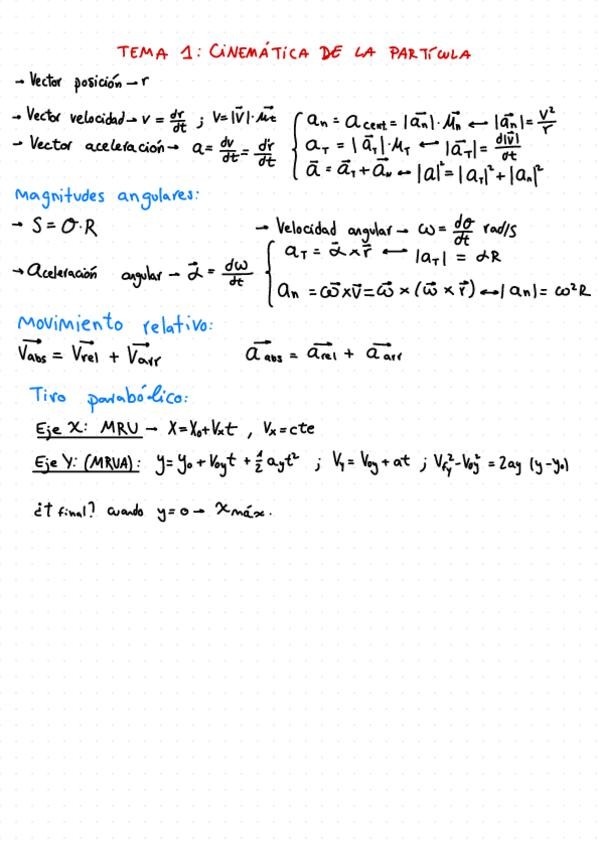 TEMA 1: CINEMÁTICA DE LA PARTÍCULA
→ Vector posición → r
→ Vector velocidad → v = dr/dt ; V = |V⃗|·μ⃗t
→ Vector aceleración → a = dv/dt = dr/dt
{ an = a cent = |a⃗n|·μ⃗n ↔ |a⃗n| = V²/r
aT = |a⃗T|·μT ↔ |a⃗T| = d|v⃗|/dt
a⃗ = a⃗T + a⃗n ↔ |a|² = |aT|² + |an|²
Magnitudes angulares:
→ S = σ·R
→ Velocidad angular → ω = dσ/dt rad/s
→ Aceleración angular → α⃗ = dω/dt
{ aT = α⃗ × r⃗ ↔ |aT| = αR
an = ω⃗ × v⃗ = ω⃗ × (ω⃗ × r⃗) ↔ |an| = ω²R
Movimiento relativo:
V⃗abs = V⃗rel + V⃗arr a⃗abs = a⃗rel + a⃗arr
Tiro parabólico:
Eje X: MRU → X = X₀ + Vxt , Vx = cte
Eje Y: (MRUA): y = y₀ + V₀yt + 1/2 ayt² ; Vy = V₀y + at ; Vfy² - V₀y² = 2ay (y - y₀)
¿t final? cuando y = 0 → xmáx.